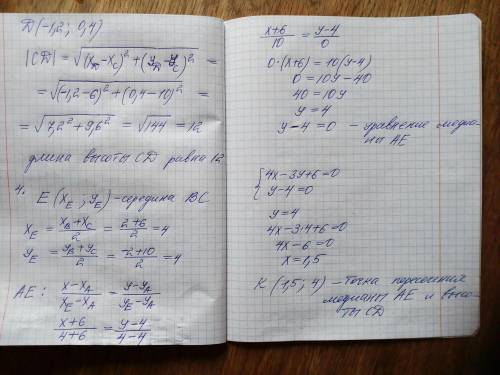 D(-1,2 ; 0,4)
|CD| = √((x_D-x_C)² + (y_D-y_C)²) =
= √((-1,2-6)² + (0,4-10)²) =
= √(7,2² + 9,6²) = √144 = 12
длина высоты CD равна 12
4. E(x_E ; y_E) - середина BC
x_E = (x_B+x_C)/2 = (2+6)/2 = 4
y_E = (y_B+y_C)/2 = (-2+10)/2 = 4
AE: (x-x_A)/(x_E-x_A) = (y-y_A)/(y_E-y_A)
(x+6)/(4+6) = (y-4)/(4-4)
(x+6)/10 = (y-4)/0
0·(x+6) = 10(y-4)
0 = 10y-40
40 = 10y
y = 4
y-4=0 - уравнение медиа-
ны AE
{4x-3y+6=0
y-4=0
y=4
4x-3·4+6=0
4x-6=0
x=1,5
K (1,5; 4) - точка пересечения
медианы AE и высо-
ты CD